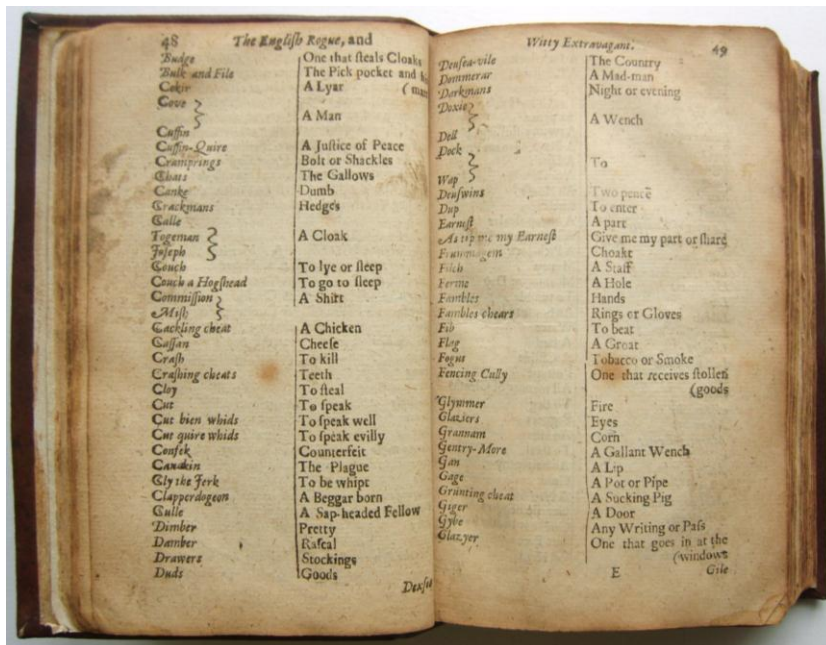 48 The Engliſh Rogue, and
Budge One that ſteals Cloaks
Bulk and File The Pick pocket and his
Cokir A Lyar (mate
Cove
A Man
Cuffin
Cuffin-Quire A Juſtice of Peace
Cramprings Bolt or Shackles
Chats The Gallows
Canke Dumb
Crackmans Hedges
Calle
Togeman A Cloak
Joſeph
Couch To lye or ſleep
Couch a Hogſhead To go to ſleep
Commiſſion A Shirt
Miſh
Cackling cheat A Chicken
Caſſan Cheeſe
Craſh To kill
Craſhing cheats Teeth
Cloy To ſteal
Cut To ſpeak
Cut bien whids To ſpeak well
Cut quire whids To ſpeak evilly
Confek Counterfeit
Canakin The Plague
Cly the Jerk To be whipt
Clapperdogeon A Beggar born
Culle A Sap-headed Fellow
Dimber Pretty
Damber Raſcal
Drawers Stockings
Duds Goods
Witty Extravagant. 49
Deuſea-vile The Country
Dommerar A Mad-man
Darkmans Night or evening
Doxie
A Wench
Dell
Dock
To
Wap
Deuſwins Two pence
Dup To enter
Earneſt A part
As tip me my Earneſt Give me my part or ſhare
Frummagem Choakt
Filch A Staff
Ferme A Hole
Fambles Hands
Fambles cheats Rings or Gloves
Fib To beat
Flag A Groat
Fogus Tobacco or Smoke
Fencing Cully One that receives ſtollen
(goods
Glymmer Fire
Glaziers Eyes
Grannam Corn
Gentry-More A Gallant Wench
Gan A Lip
Gage A Pot or Pipe
Grunting cheat A Sucking Pig
Giger A Door
Gybe Any Writing or Paſs
Glazyer One that goes in at the
(windows
E Gilt